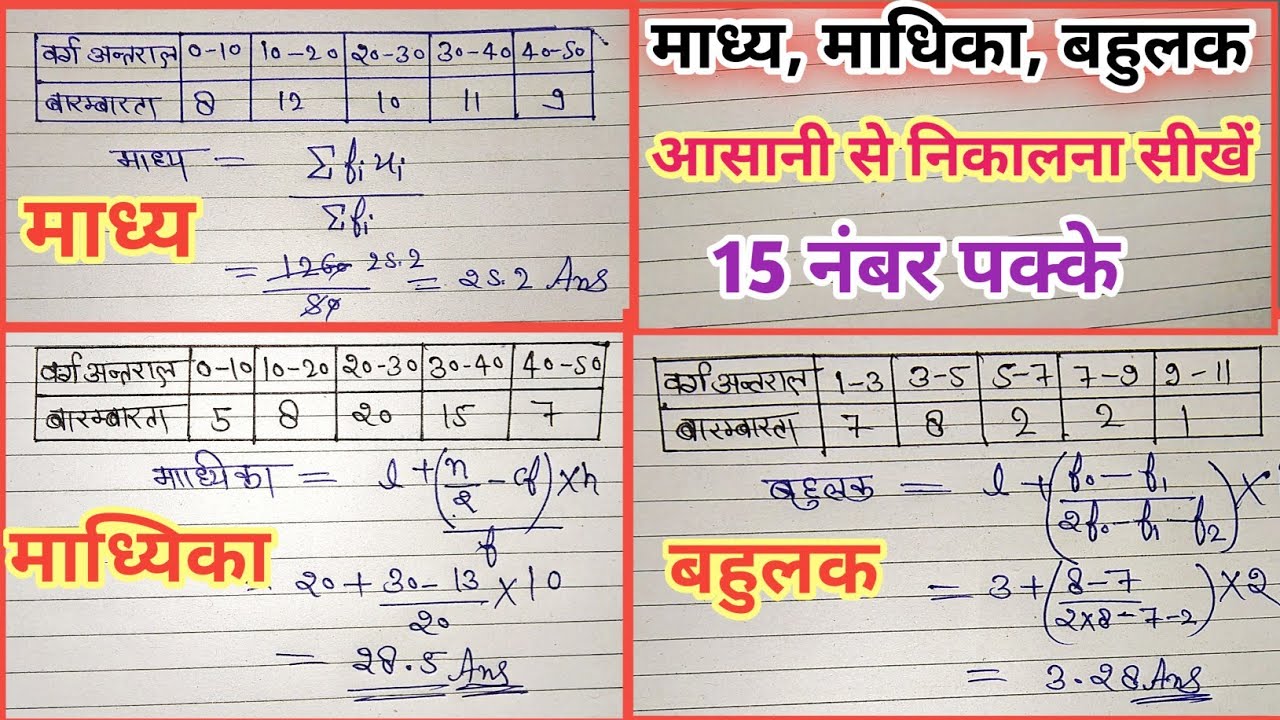 वर्ग अन्तराल 0-10 10-20 20-30 30-40 40-50
बारम्बारता 8 12 10 11 9
माध्य = Σfᵢxᵢ
Σfᵢ
माध्य
= 1260 25.2 = 25.2 Ans
50
माध्य, माधिका, बहुलक
आसानी से निकालना सीखें
15 नंबर पक्के
वर्ग अन्तराल 0-10 10-20 20-30 30-40 40-50
बारम्बारता 5 8 20 15 7
माध्यिका = l+(n/2 - cf)×h
f
माध्यिका
= 20+30-13×10
20
= 28.5 Ans
वर्ग अन्तराल 1-3 3-5 5-7 7-9 9-11
बारम्बारता 7 8 2 2 1
बहुलक = l+(f₀-f₁)×
2f₀-f₁-f₂
बहुलक
= 3+(8-7)×2
2×8-7-2
= 3.28 Ans